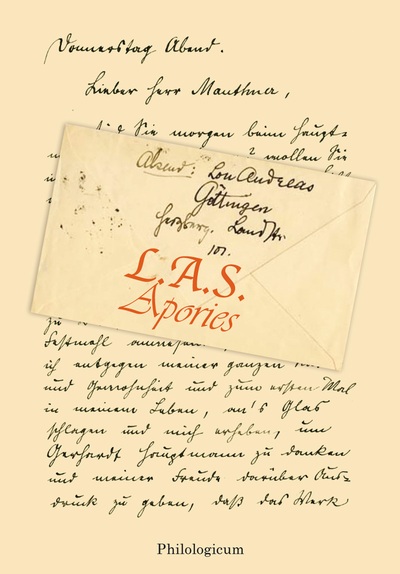 Donnerstag Abend.
Lieber Herr Mauthner,
Sie morgen beim Haupt=
wollen Sie
Absend: Lou Andreas
Göttingen
Herzberg. Landstr
101.
L.A.S.
Apories
zu
Festmahl
ich entgegen meiner ganzen
und Gewohnheit und zum ersten Mal
in meinem Leben, an's Glas
schlagen und mich erheben, um
Gerhardt Hauptmann zu danken
und meiner Freude darüber Aus=
druck zu geben, daß das Werk
Philologicum